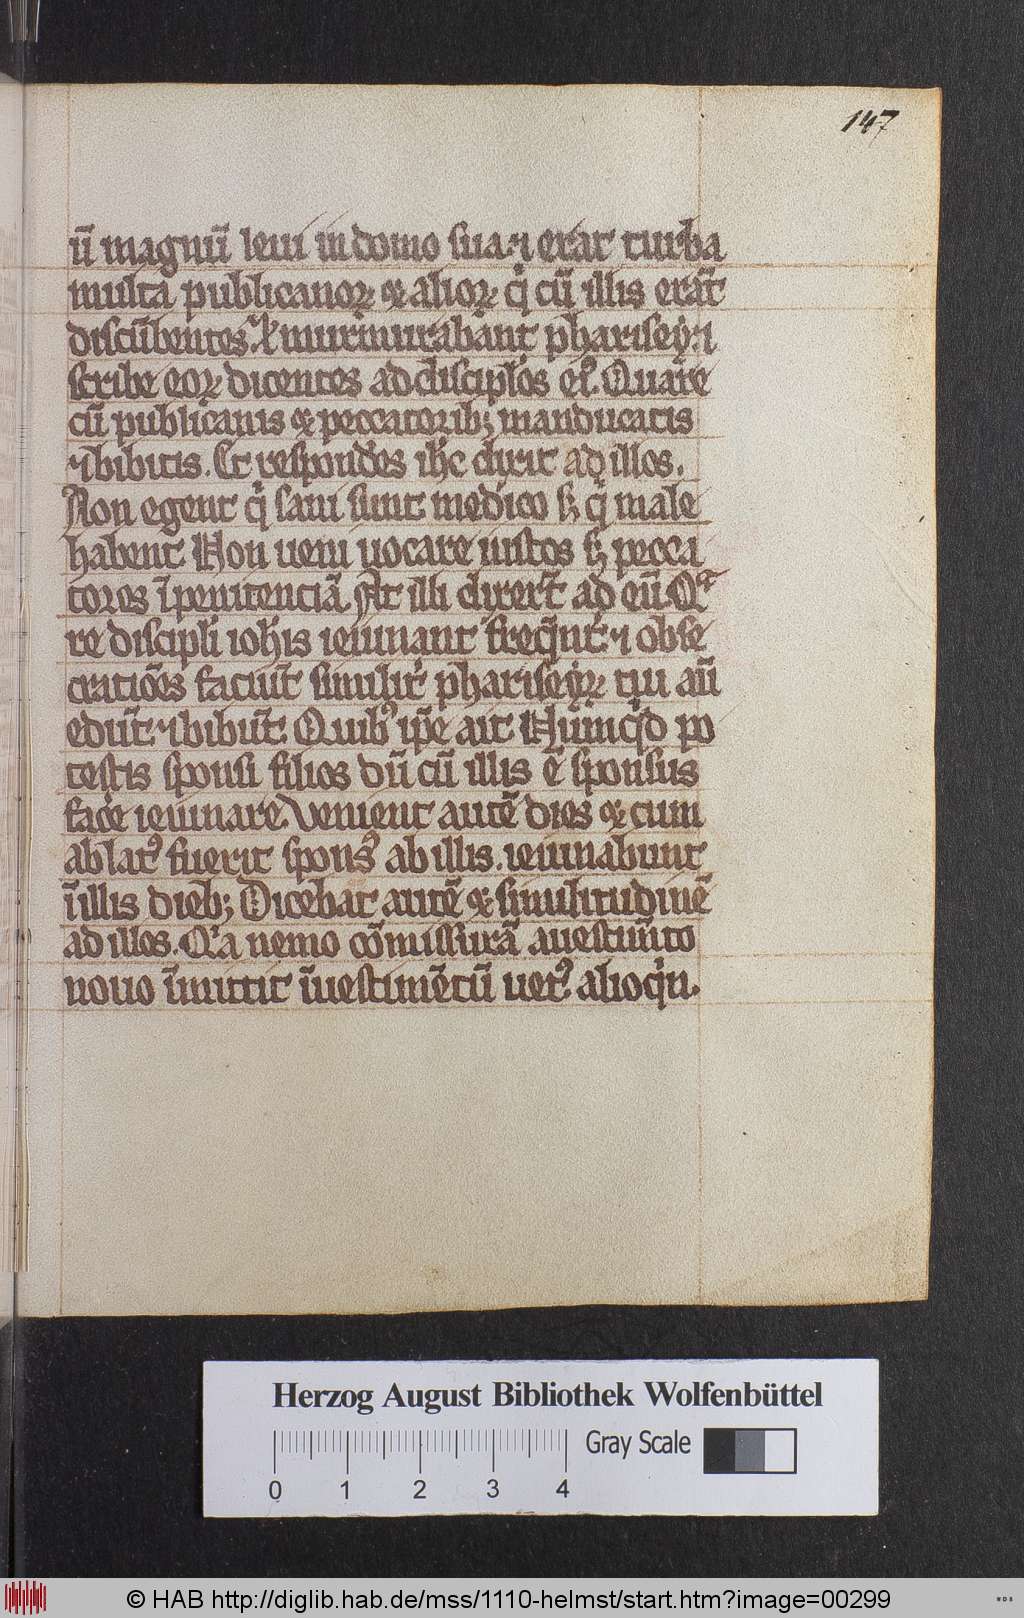 147
ū magnū leui in domo sua ⁊ erat turba
multa publicanoꝝ & alioꝝ qͥ cū illis erāt
discūbentes. & murmurabant pharisey ⁊
scribe eoꝝ dicentes ad disciplōs eiꝰ. Quare
cū publicanis & peccatorib; manducatis
⁊ bibitis. Et respondēs ihc dixit ad illos.
Non egent qͥ sani sunt medico sꝫ qͥ male
habent Non ueni uocare iustos sꝫ pecca
tores ī penitenciā. At illi dixer̄t ad eū Qᵃ
re discipli iohis ieiunant freqn̄t ⁊ obse
cratiōes faciūt similit pharisey tui aū
edūt ⁊ bibūt. Quibꝰ ip̄e ait Numqͥd po
testis sponsi filios dū cū illis ē sponsus
face ieiunare. Venient autē dies & cum
ablatꝰ fuerit sponsꝰ ab illis. ieiunabunt
ī illis dieb; Dicebat autē & similitudinē
ad illos. Qͥa nemo cōmissurā a uestimto
nouo īmittit ī uestimētū uetꝰ. alioqͥn.
Herzog August Bibliothek Wolfenbüttel
Gray Scale
0 1 2 3 4
© HAB http://diglib.hab.de/mss/1110-helmst/start.htm?image=00299